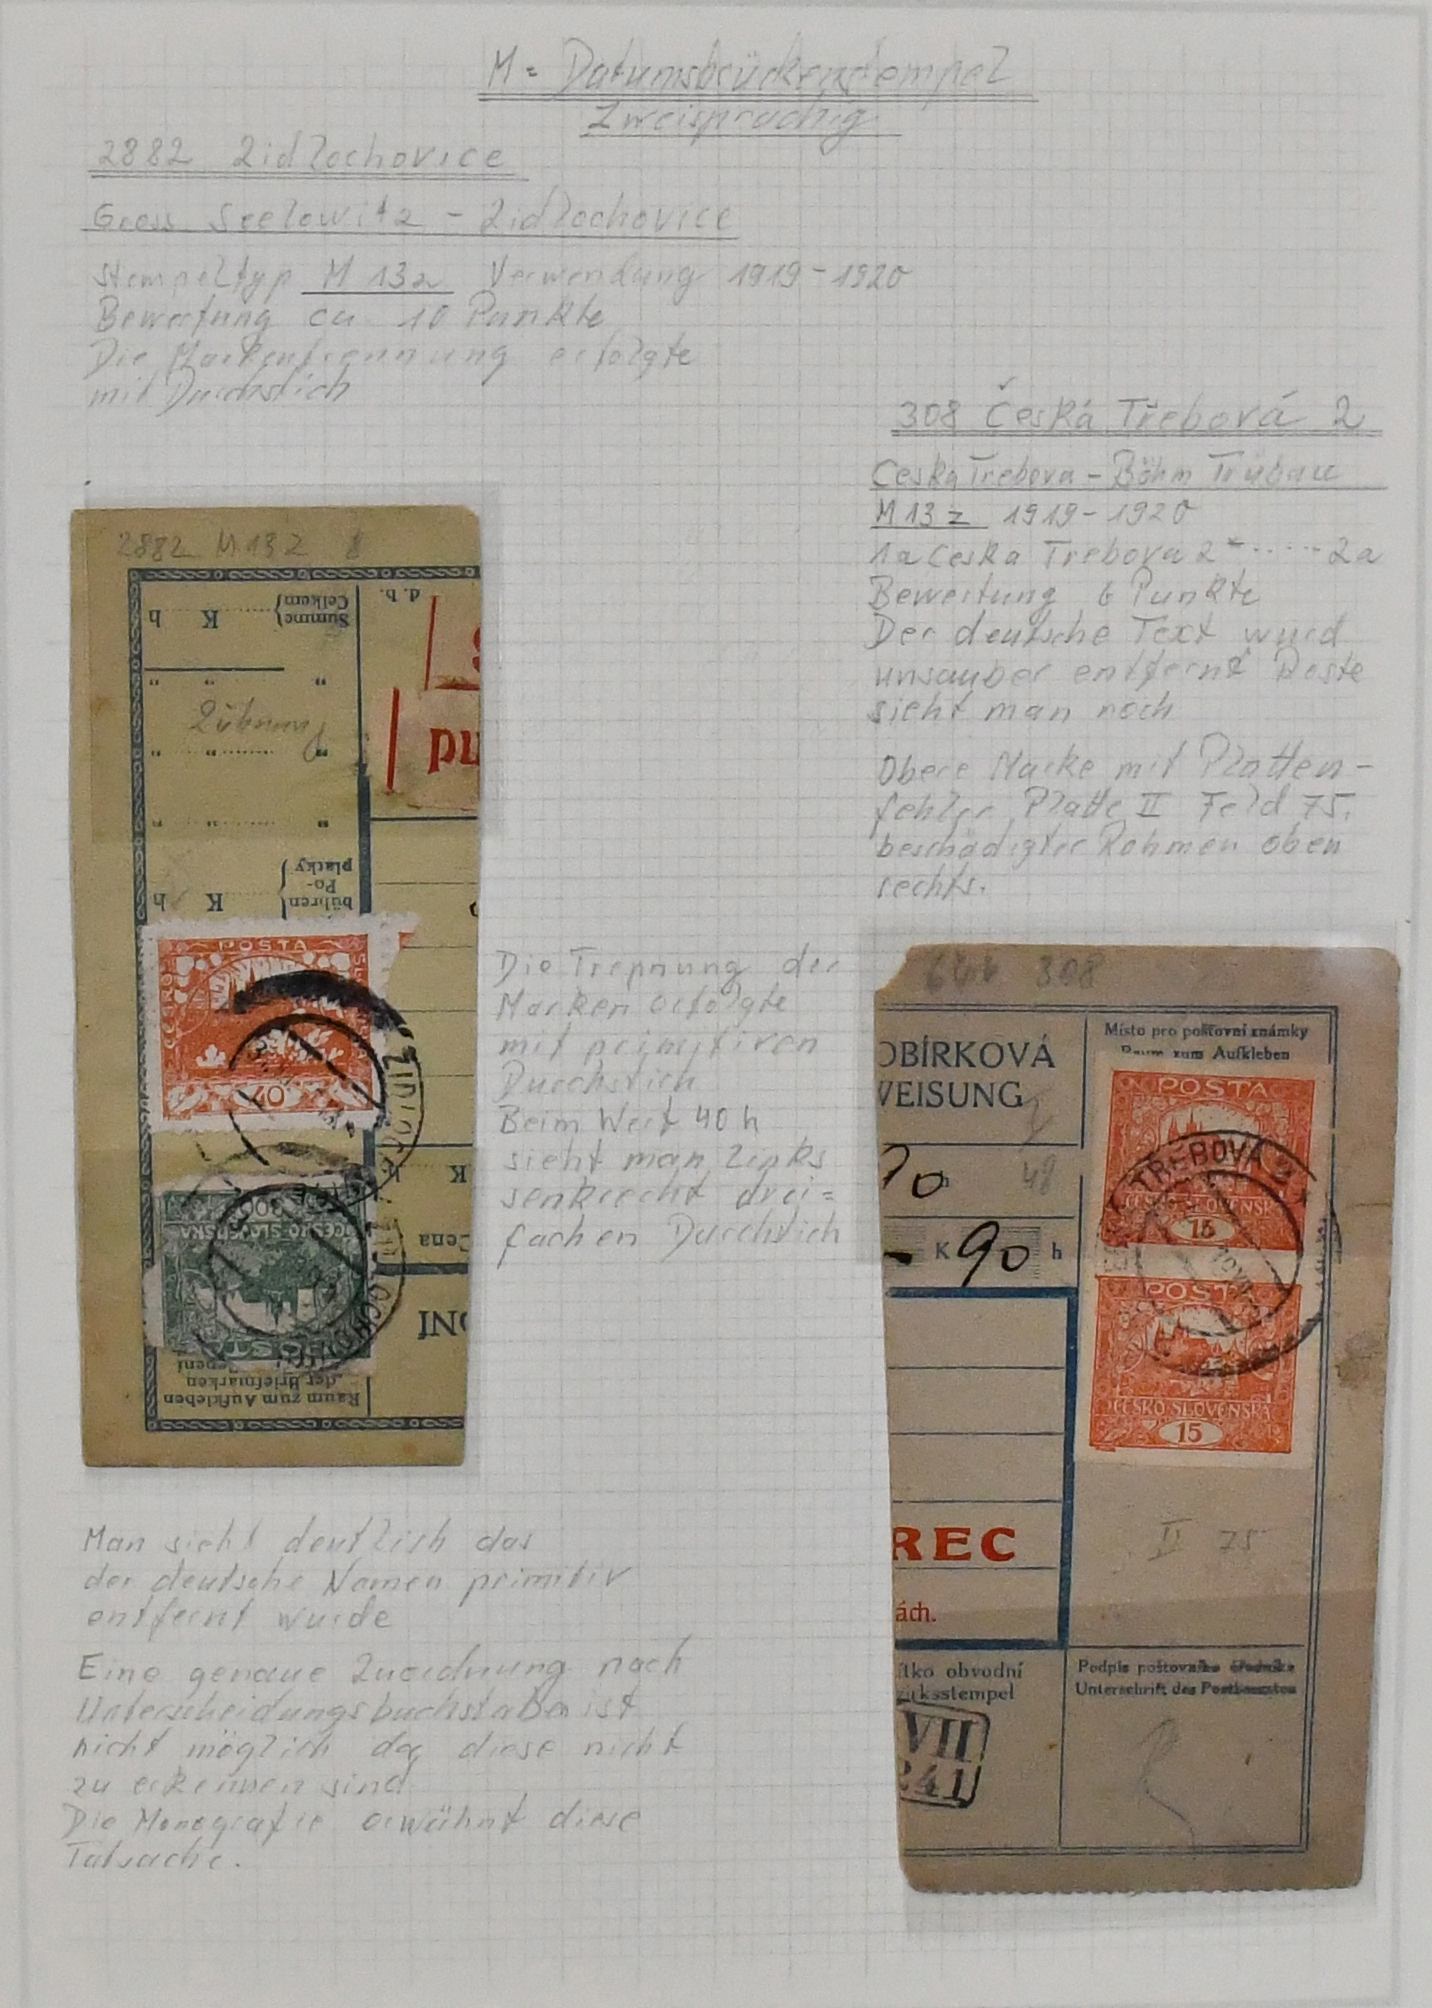 M = Datumsbrückenstempel
Zweisprachig
2882 Zidlochovice
Gross Seelowitz - Zidlochovice
Stempeltyp M 13z Verwendung 1919-1920
Bewertung ca 10 Punkte
Die Markentrennung erfolgte
mit Durchstich
308 Česká Třebová 2
Ceska Třebova - Böhm Trübau
M 13 z 1919-1920
1a Ceska Třebova 2 * ..... 2a
Bewertung 6 Punkte
Der deutsche Text wurd
unsauber entfernt Reste
sieht man noch
Obere Marke mit Platten-
fehler Platte II Feld 75.
beschädigter Rahmen oben
rechts.
2882 M 13 z 8
Summe
Celkem
K h
d. b.
nd
bühren
Po-
platky
K h
POSTA
40
ZIDLOCH
K
300
ČESKO SLOVENSKA
Cena
LOCHOVI
POSTA
DNÍ
der Briefmarken
Raum zum Aufkleben
Die Trennung der
Marken erfolgte
mit primitiven
Durchstich
Beim Wert 40 h
sieht man links
senkrecht drei=
fachen Durchstich
308
OBÍRKOVÁ
WEISUNG
Místo pro poštovní známky
Raum zum Aufkleben
POSTA
48
TŘEBOVÁ 2
ČESKO SLOVENSK
15
K 90 h
POSTA
ČESKO SLOVENSKA
15
REC
II 75
ách.
ítko obvodní
zirksstempel
Podpis poštovního úředníka
Unterschrift des Postbeamten
VII
241
Man sieht deutlich das
der deutsche Namen primitiv
entfernt wurde
Eine genaue Zuordnung nach
Unterscheidungsbuchstaben ist
nicht möglich da diese nicht
zu erkennen sind
Die Monografie erwähnt diese
Tatsache.